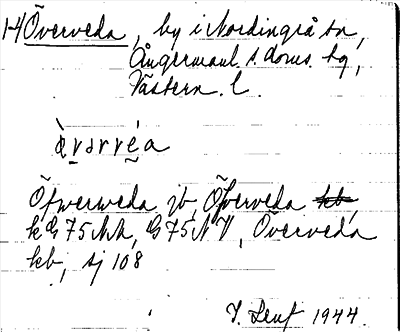 Överveda, by i Nordingrå sn,
Ångermanl. s. doms. tg,
Västern. l.
òvərvéa
Öfwerweda jb, Öfverveda kb,
kG75NA, G75NV, Överveda
kb, sj 108
1944.